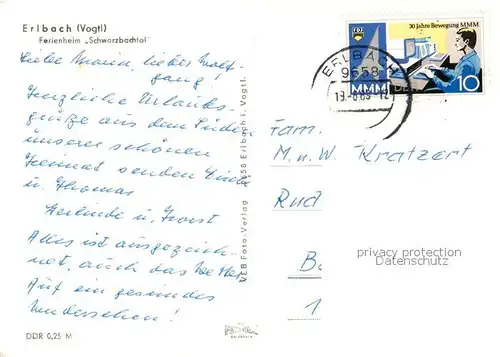 Erlbach (Vogtl)
Ferienheim „Schwarzbachtal"
Liebe Maria, lieber Wolf-
gang!
Herzliche Urlaubs-
grüße aus dem Süden
unserer schönen
Heimat senden
u. Thomas
Gerlinde u. Horst
Alles ist ausgezeich-
net, auch das Wetter.
Auf ein gesundes
Wiedersehen!
DDR 0,25 M
VEB Foto-Verlag 9658 Erlbach i. Vogtl.
30 Jahre Bewegung MMM
FDJ
MMM
DDR
10
ERLBACH
9658
Fam.
M. u. W. Kratzert
Rud
B
1
privacy protection
Datenschutz